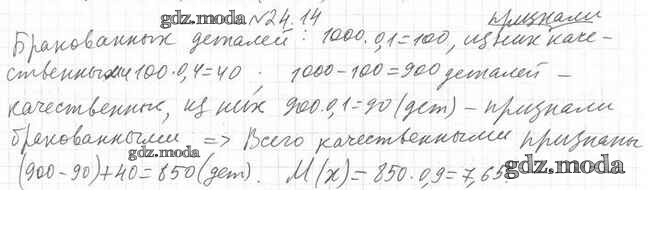 gdz.moda №24.14 признали
Бракованных деталей: 1000·0,1=100, из них каче-
ственными 100·0,4=40. 1000-100=900 деталей -
качественные, из них 900·0,1=90 (дет) - признали
бракованными => Всего качественными признаны
gdz.moda
(900-90)+40=850 (дет). M(x)=850·0,9=7,65.
gdz.moda